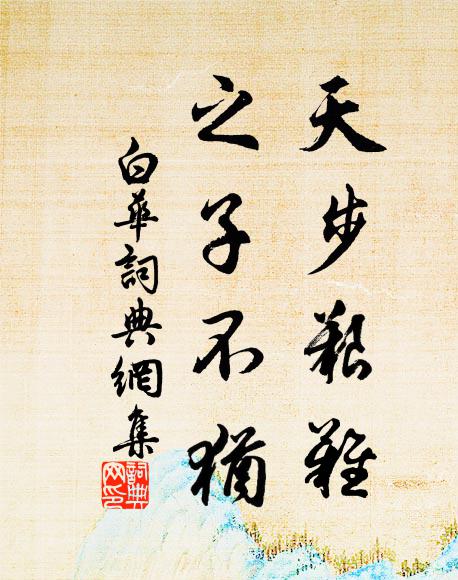 天步艱難
之子不猶
白華詞典網集
詞典
网印